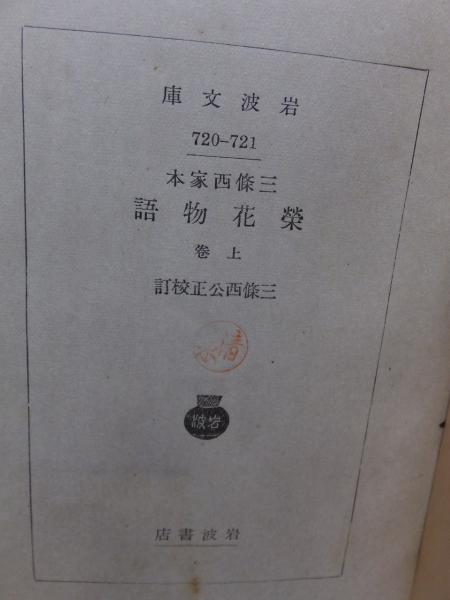 岩波文庫
720-721
三條西家本
榮花物語
上卷
三條西公正校訂
岩波
岩波書店